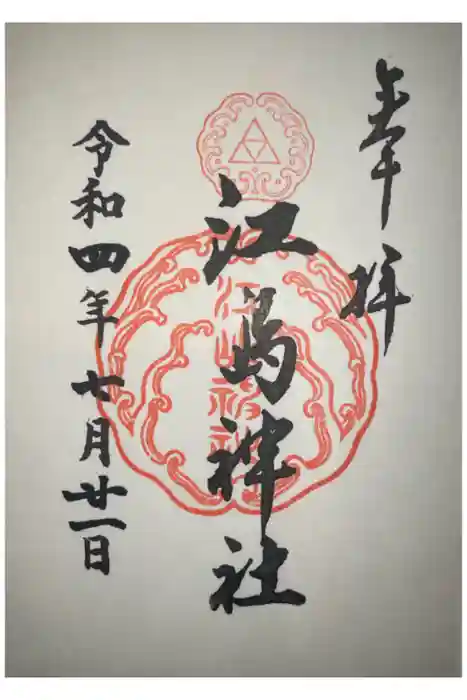 奉拝
江島神社
令和四年七月廿一日